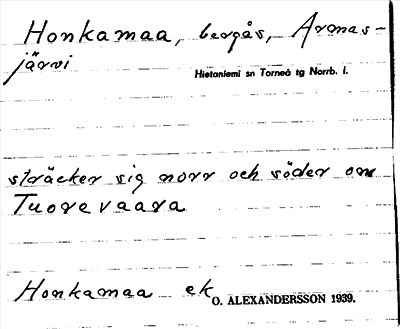 Honkamaa, bergås, Armas-
järvi
Hietaniemi sn Torneå tg Norrb. l.
sträcker sig norr och söder om
Tuorevaara
Honkamaa ek
O. ALEXANDERSSON 1939.